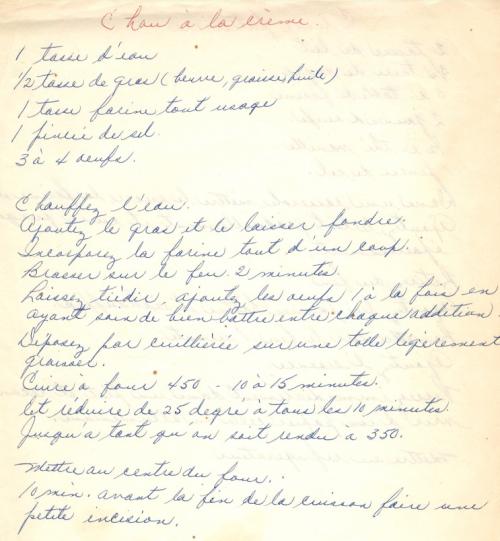 Chou à la crème.
1 tasse d'eau
1/2 tasse de gras (beurre, graisse, huile)
1 tasse farine tout usage
1 pincée de sel.
3 à 4 oeufs.
Chauffez l'eau.
Ajoutez le gras et le laisser fondre.
Incorporez la farine tout d'un coup.
Brasser sur le feu 2 minutes.
Laissez tiédir, ajoutez les oeufs 1 à la fois en
ayant soin de bien battre entre chaque addition.
Déposez par cuillierée sur une tolle légèrement
graisser.
Cuire à four 450 - 10 à 15 minutes.
et réduire de 25 degré à tous les 10 minutes.
Jusqu'a tant qu'on soit rendu à 350.
Mettre au centre du four.
10 min. avant la fin de la cuisson faire une
petite incision.